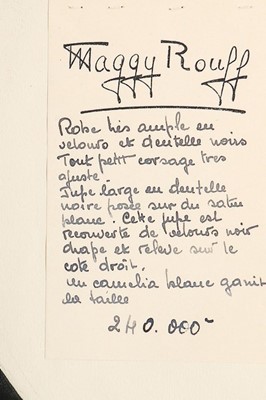 Maggy Rouff
Robe très ample en
velours et dentelle noirs
Tout petit corsage très
ajusté.
Jupe large en dentelle
noire posée sur du satin
blanc. Cette jupe est
recouverte de velours noir
drapé et relevé sur le
coté droit.
un camelia blanc garnit
la taille
240.000